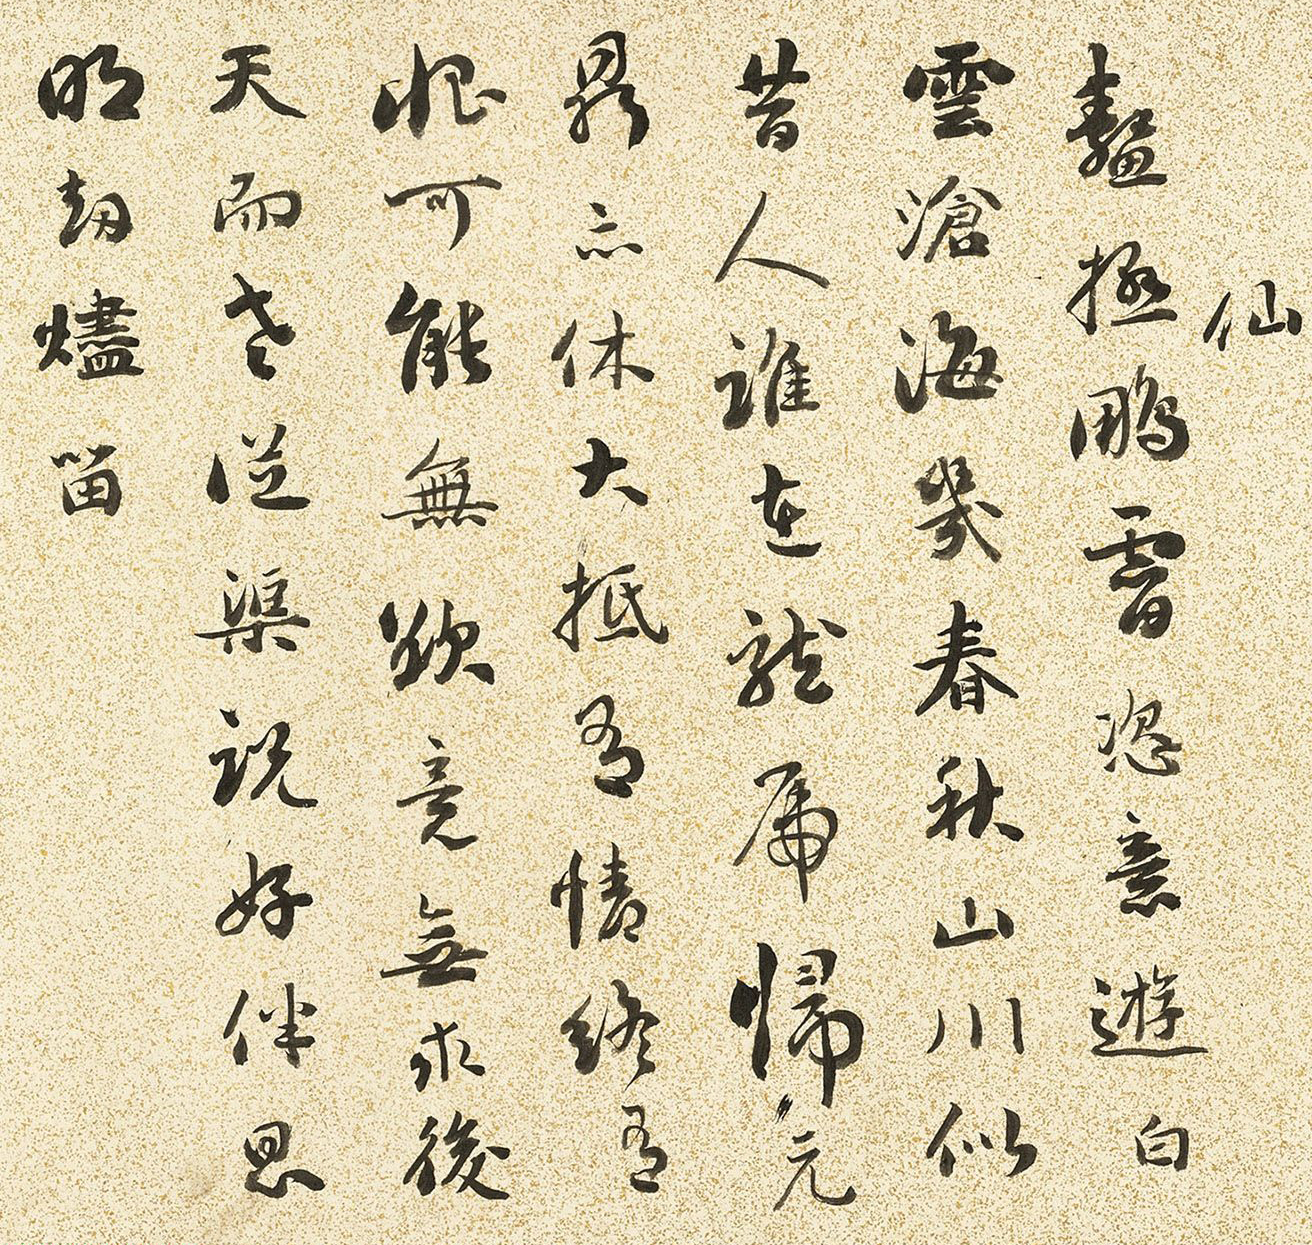 仙
鼇極鵬霄恣意遊白
雲滄海幾春秋山川似
昔人誰在龍虎歸元
鼎亦休大抵有情終有
恨可能無欲竟無求後
天而老從渠說好伴思
明劫燼留